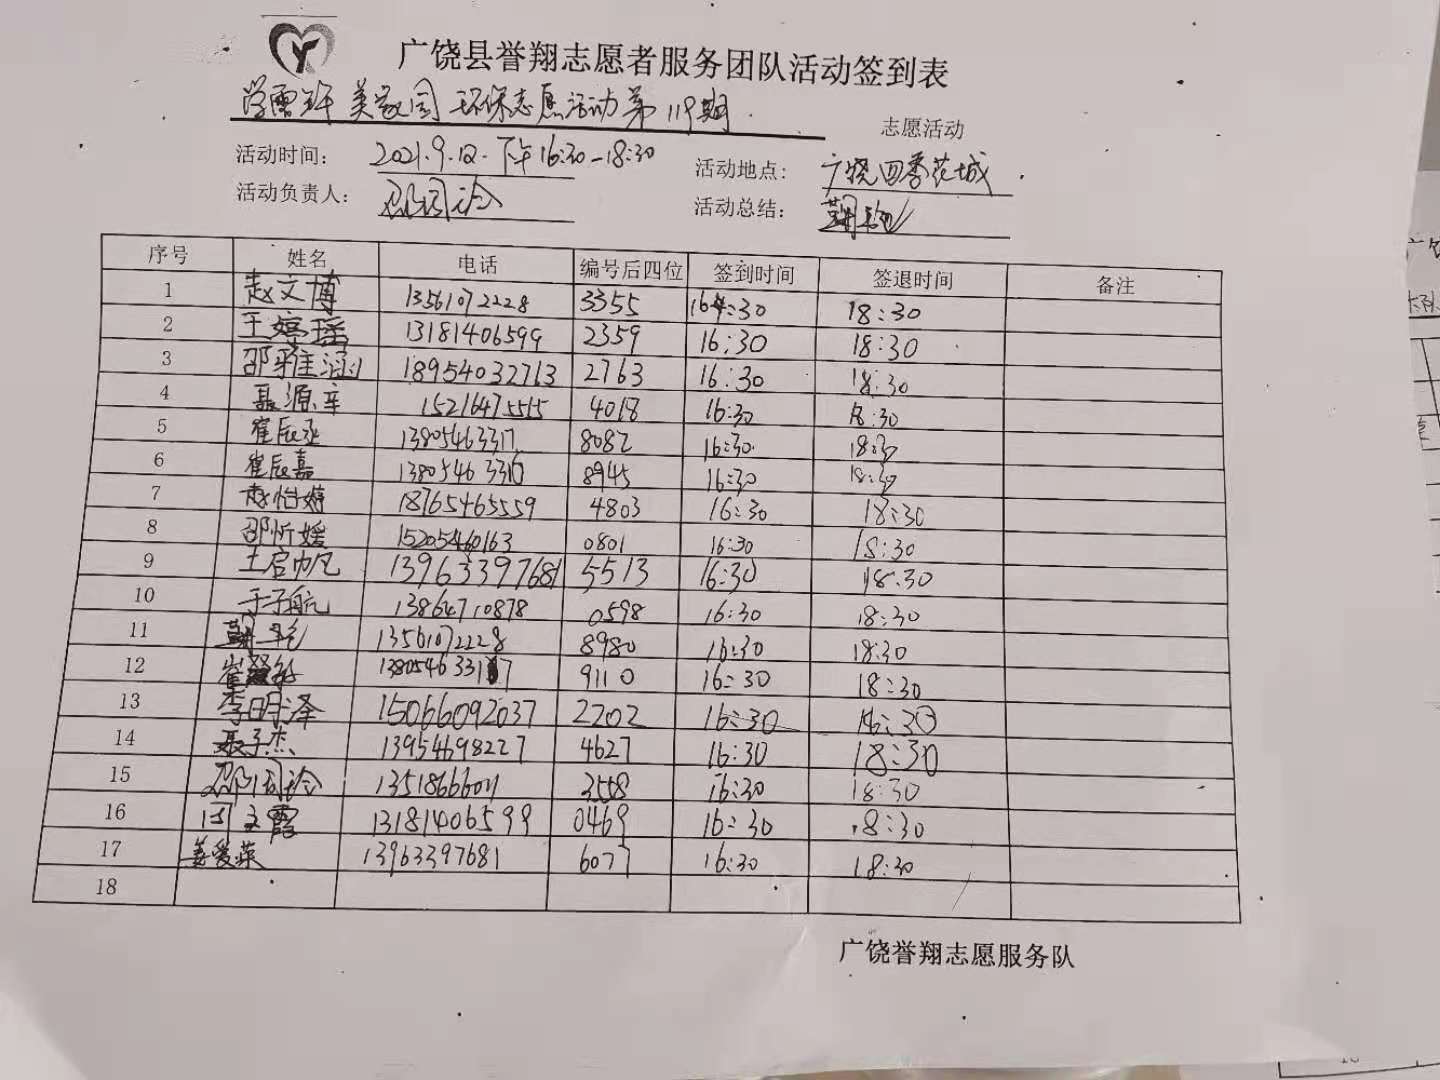 广饶县誉翔志愿者服务团队活动签到表
学雷锋 美家园 环保志愿活动第119期 志愿活动
活动时间： 2021.9.12.下午16:30-18:30 活动地点： 广饶四季花城
活动负责人： 活动总结：
序号 姓名 电话 编号后四位 签到时间 签退时间 备注
1 赵文博 13561072228 3355 16:30 18:30
2 王婷瑶 13181406599 2359 16:30 18:30
3 邵雅涵 18954032713 2763 16:30 18:30
4 聂源辛 15216475515 4018 16:30 18:30
5 崔辰丞 13805463317 8082 16:30 18:30
6 崔辰嘉 13805463310 8945 16:30 18:30
7 赵怡婷 18765465559 4803 16:30 18:30
8 邵忻媛 15205460163 0801 16:30 18:30
9 王启帆 13963397681 5513 16:30 18:30
10 于子航 13864710878 0598 16:30 18:30
11 13561072228 8980 16:30 18:30
12 崔 13805463317 9110 16:30 18:30
13 李明泽 15066092037 2202 16:30 16:30
14 聂子杰 13954698227 4627 16:30 18:30
15 13518666011 3558 16:30 18:30
16 13181406599 0469 16:30 18:30
17 姜爱燕 13963397681 6077 16:30 18:30
18
广饶誉翔志愿服务队